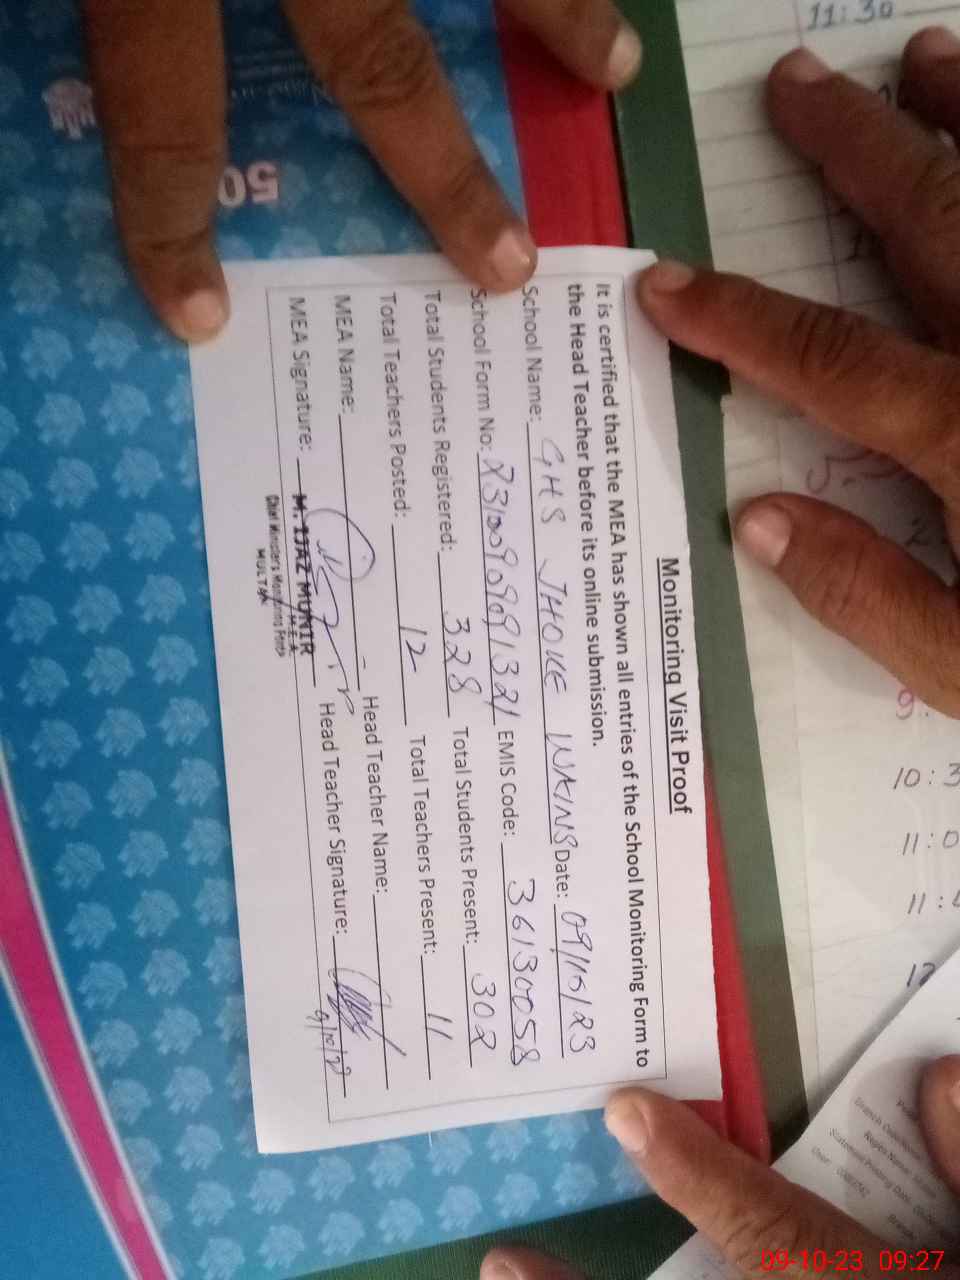 Monitoring Visit Proof
It is certified that the MEA has shown all entries of the School Monitoring Form to
the Head Teacher before its online submission.
School Name: GHS JHOKE WAINS Date: 09/10/23
School Form No: EMIS Code: 36130058
Total Students Registered: 328 Total Students Present: 302
Total Teachers Posted: 12 Total Teachers Present: 11
MEA Name: Head Teacher Name:
MEA Signature: Head Teacher Signature:
M. IJAZ MUNIR
M.E.A.
Chief Ministers Monitoring Force
MULTAN
50
11:30
10:3
11:0
11:
12
09-10-23 09:27